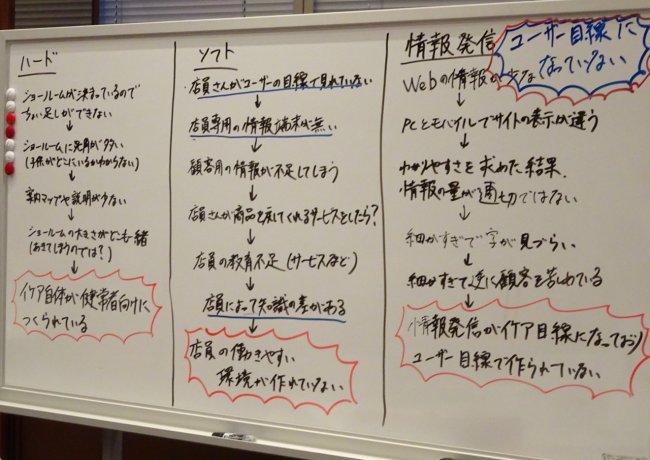 ハード
ショールームが決まっているので
ちょい足しができない
↓
ショールームに死角が多い
(子供がどこにいるかわからない)
↓
案内マップや説明が少ない
↓
ショールームの大きさがどこも一緒
(あきてしまうのでは?)
↓
イケア自体が健常者向けに
つくられている
ソフト
店員さんがユーザーの目線で見れていない
↓
店員専用の情報端末が無い
↓
顧客用の情報が不足してしまう
↓
店員さんが商品を戻してくれるサービスとしたら?
↓
店員の教育不足(サービスなど)
↓
店員によって知識の差がある
↓
店員の働きやすい
環境が作れていない
情報発信
ユーザー目線に
なっていない
Webの情報が少な
↓
PCとモバイルでサイトの表示が違う
↓
わかりやすさを求めた結果、
情報の量が適切ではない
↓
細かすぎて字が見づらい
↓
細かすぎて逆に顧客を苦しめている
↓
情報発信がイケア目線になっており
ユーザー目線で作られていない